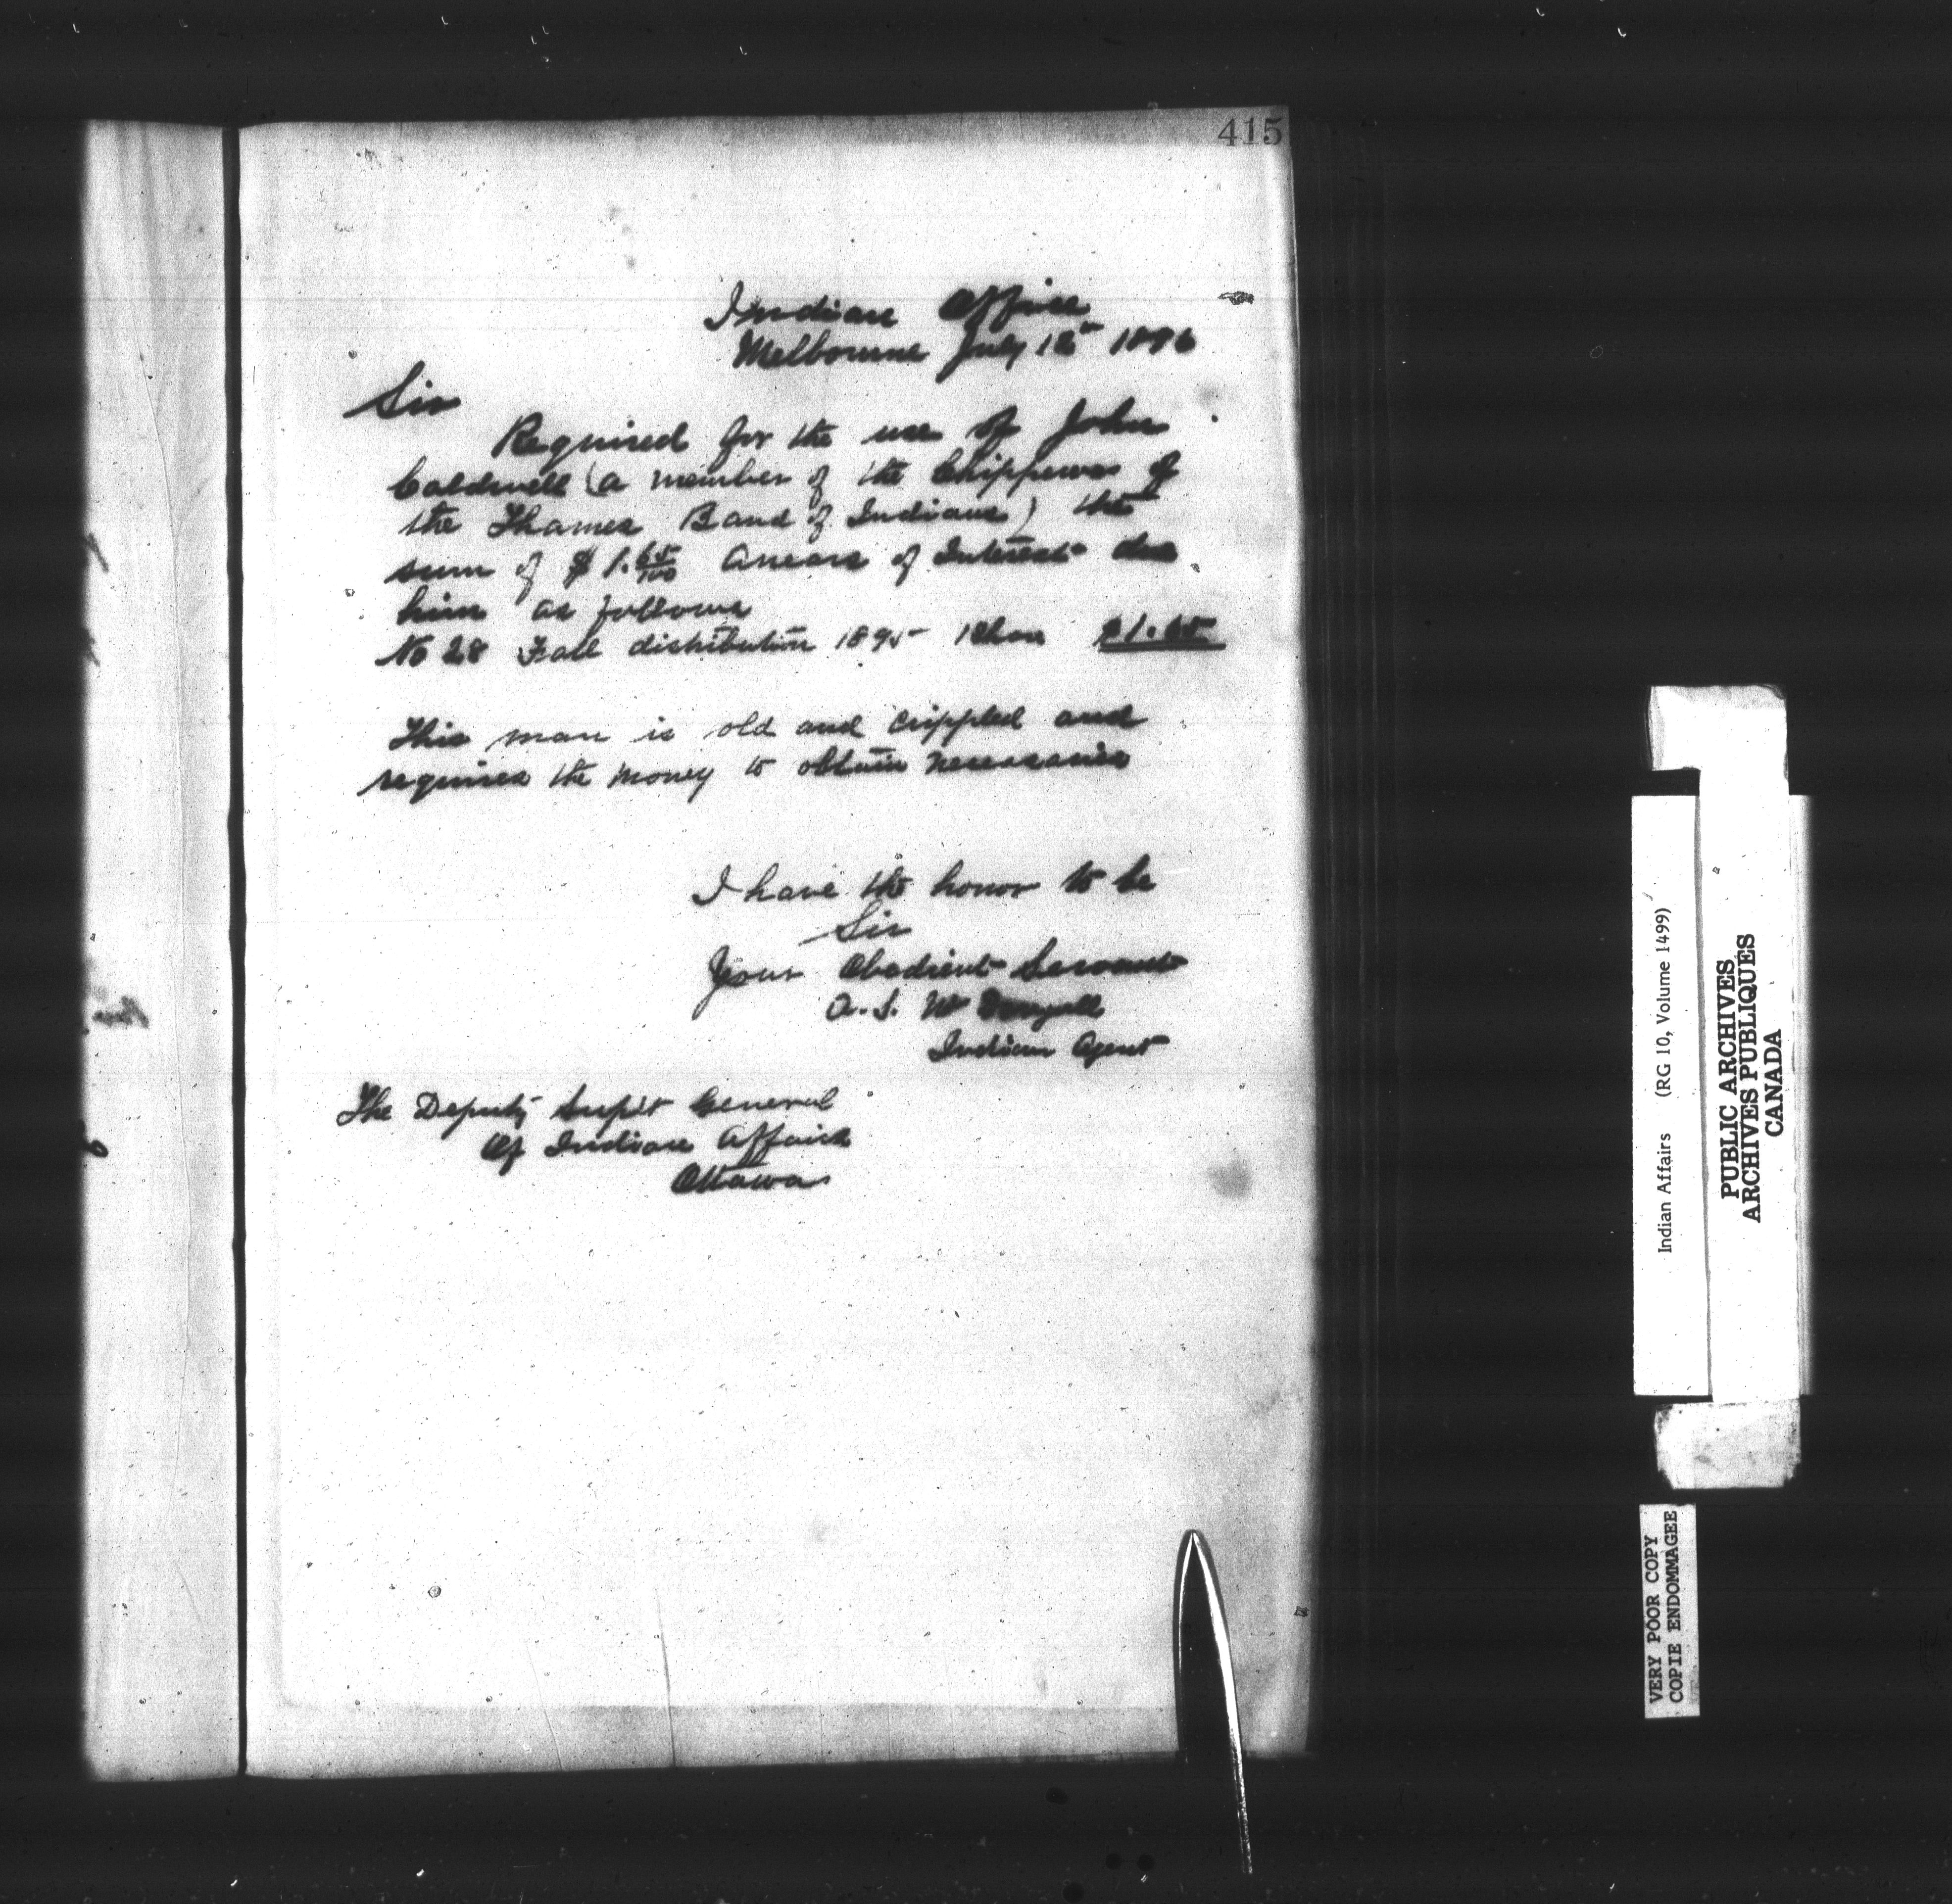 415
Indian Office
Melbourne July 1896
Sir
Required for the use of John
Caldwell (a member of the Chippewas of
the Thames Band of Indians) the
sum of $1.65/100 Arrears of Interest due
him as follows
No 28 Fall distribution 1895 1 Share $1.65
This man is old and crippled and
requires the money to obtain necessaries
I have the honor to be
Sir
Your Obedient Servant
A. S. McDougall
Indian Agent
The Deputy Supt General
Of Indian Affairs
Ottawa
Indian Affairs (RG 10, Volume 1499)
PUBLIC ARCHIVES
ARCHIVES PUBLIQUES
CANADA
VERY POOR COPY
COPIE ENDOMMAGEE